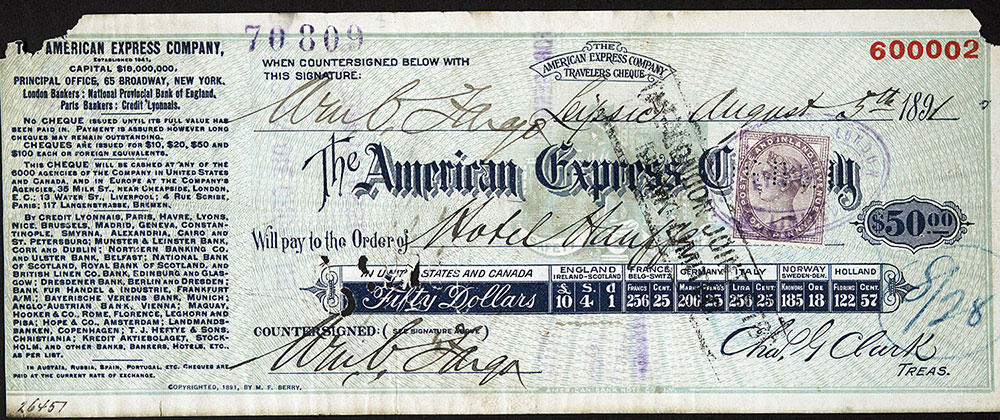 THE AMERICAN EXPRESS COMPANY,
ESTABLISHED 1841,
CAPITAL $18,000,000.
PRINCIPAL OFFICE, 65 BROADWAY, NEW YORK.
London Bankers: National Provincial Bank of England,
Paris Bankers: Credit Lyonnais.
NO CHEQUE ISSUED UNTIL ITS FULL VALUE HAS
BEEN PAID IN. PAYMENT IS ASSURED HOWEVER LONG
CHEQUES MAY REMAIN OUTSTANDING.
CHEQUES ARE ISSUED FOR $10, $20, $50 AND
$100 EACH OR FOREIGN EQUIVALENTS.
THIS CHEQUE WILL BE CASHED AT ANY OF THE
6000 AGENCIES OF THE COMPANY IN UNITED STATES
AND CANADA, AND IN EUROPE AT THE COMPANY'S
AGENCIES, 35 MILK ST., NEAR CHEAPSIDE, LONDON,
E.C.; 13 WATER ST., LIVERPOOL; 4 RUE SCRIBE,
PARIS; 117 LANGENSTRASSE, BREMEN.
BY CREDIT LYONNAIS, PARIS, HAVRE, LYONS,
NICE, BRUGES, MADRID, GENEVA, CONSTAN-
TINOPLE, SMYRNA, ALEXANDRIA, CAIRO AND
ST. PETERSBURG; MUNSTER & LEINSTER BANK,
CORK AND DUBLIN; NORTHERN BANKING CO.
AND ULSTER BANK, BELFAST; NATIONAL BANK
OF SCOTLAND, ROYAL BANK OF SCOTLAND, AND
BRITISH LINEN CO. BANK, EDINBURG AND GLAS-
GOW; DRESDENER BANK, BERLIN AND DRESDEN;
BANK FUR HANDEL & INDUSTRIE, FRANKFURT
A/M.; BAYERISCHE VEREINS BANK, MUNICH;
ANGLO-AUSTRIAN BANK, VIENNA; MAQUAY,
HOOKER & CO., ROME, FLORENCE, LEGHORN AND
PISA; HOPE & CO., AMSTERDAM; LANDMANDS-
BANKEN, COPENHAGEN; T. J. HEFTYE & SONS,
CHRISTIANIA; KREDIT AKTIEBOLAGET, STOCK-
HOLM, AND OTHER BANKS, BANKERS, HOTELS, ETC.
AS PER LIST.
IN AUSTRIA, RUSSIA, SPAIN, PORTUGAL, ETC. CHEQUES ARE
PAID AT THE CURRENT RATE OF EXCHANGE.
26451
70809
WHEN COUNTERSIGNED BELOW WITH
THIS SIGNATURE:
THE
AMERICAN EXPRESS COMPANY
TRAVELERS CHEQUE.
600002
Wm C. Fargo Leipsic August 5th 1891
The American Express Company
$50.00
Will pay to the Order of Hotel Hauffe
IN UNITED STATES AND CANADA ENGLAND IRELAND-SCOT'D FRANCE BELG-SWITZ. GERMANY ITALY NORWAY SWEDEN-DEN. HOLLAND
Fifty Dollars £ S. d 10 4 1 FRANCS CENT. 256 25 MARKS PFNGS 206 25 LIRE CENT. 256 25 KRONORS ORE 185 18 FLORINS CENT. 122 57
8/28
COUNTERSIGNED: (SEE SIGNATURE ABOVE)
Wm C. Fargo
Chas. G Clark
TREAS.
COPYRIGHTED, 1891, BY M. F. BERRY.